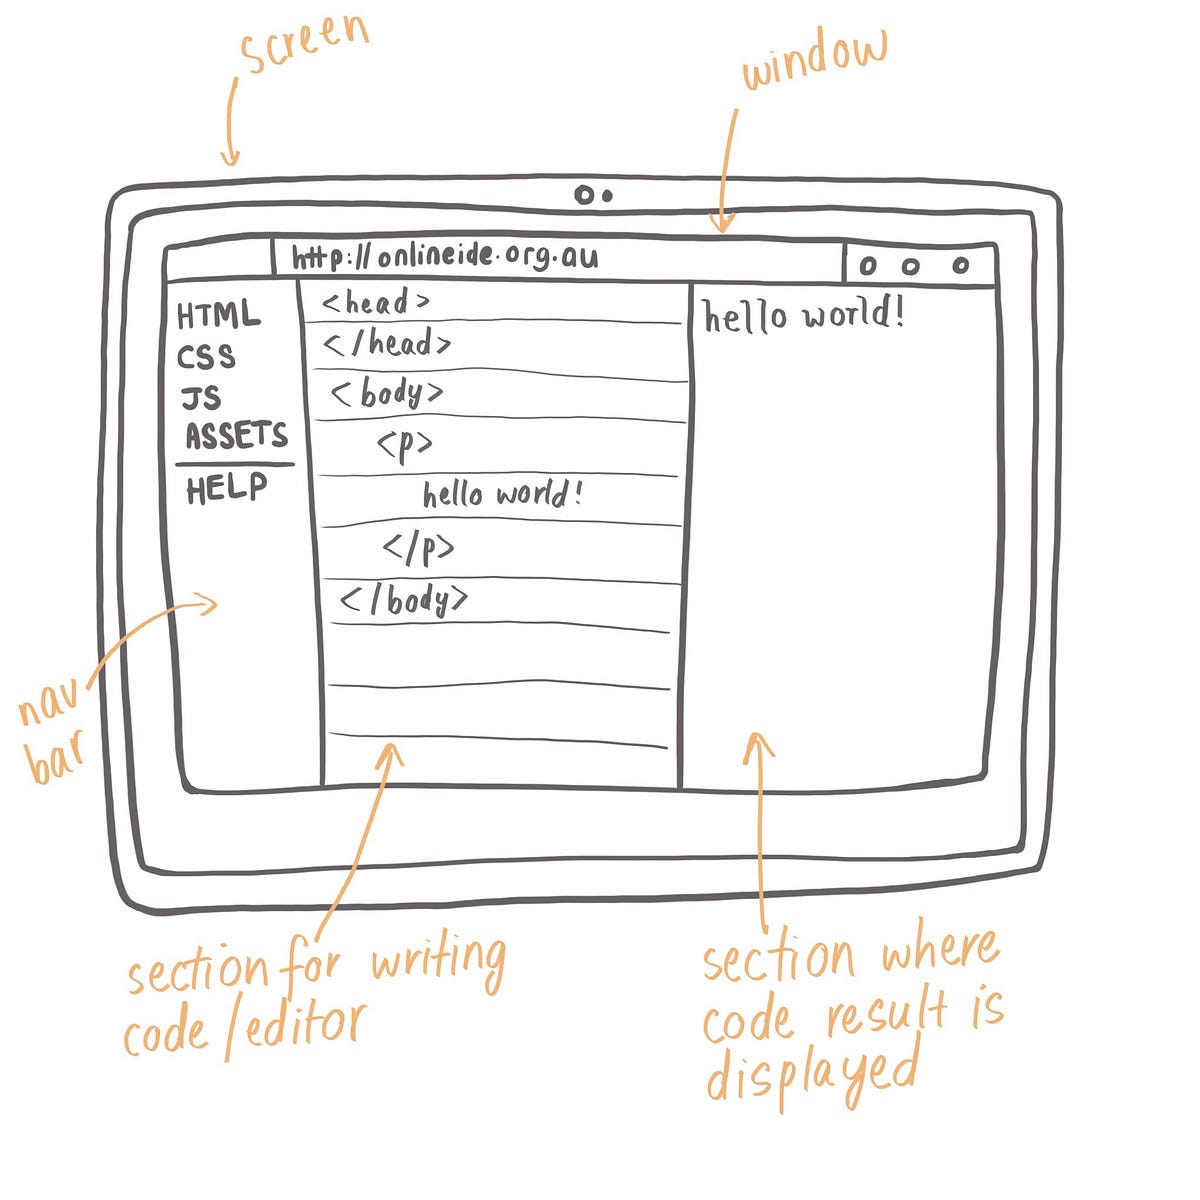 screen
window
http://onlineide.org.au
HTML
CSS
JS
ASSETS
HELP
<head>
</head>
<body>
<p>
hello world!
</p>
</body>
hello world!
nav
bar
section for writing
code/editor
section where
code result is
displayed